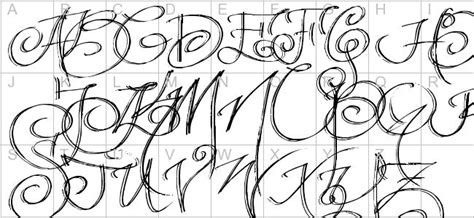 A B C D E F G H I
A B C D E F G H I
J K L M N O P Q R
J K L M N O P Q R
S T U V W X Y Z
S T U V W X Y Z